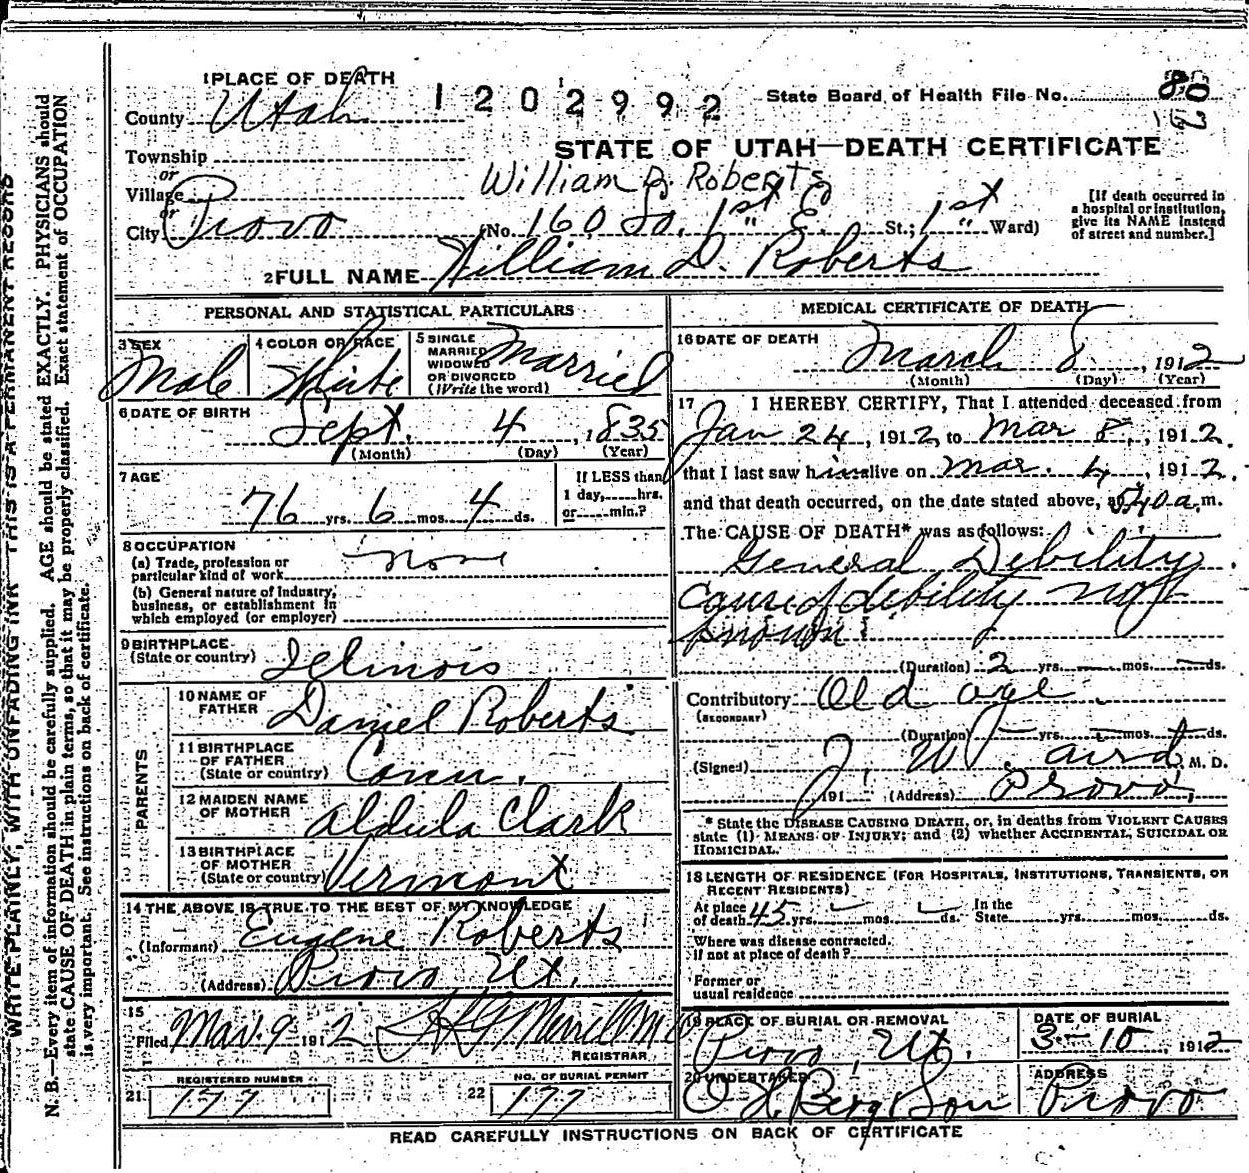 1 PLACE OF DEATH
1202992
State Board of Health File No. 80
County Utah
Township
or
Village
or
City Provo
STATE OF UTAH—DEATH CERTIFICATE
William D. Roberts
(No. 160 So. 1st E. St.; 1st Ward)
[If death occurred in a hospital or institution, give its NAME instead of street and number.]
2 FULL NAME William D. Roberts
PERSONAL AND STATISTICAL PARTICULARS
3 SEX
Male
4 COLOR OR RACE
White
5 SINGLE MARRIED WIDOWED OR DIVORCED (Write the word)
Married
6 DATE OF BIRTH
Sept. 4, 1835
(Month) (Day) (Year)
7 AGE
76 yrs. 6 mos. 4 ds.
If LESS than 1 day, hrs. or min.?
8 OCCUPATION
(a) Trade, profession or particular kind of work None
(b) General nature of industry, business, or establishment in which employed (or employer)
9 BIRTHPLACE (State or country) Illinois
PARENTS
10 NAME OF FATHER Daniel Roberts
11 BIRTHPLACE OF FATHER (State or country) Conn.
12 MAIDEN NAME OF MOTHER Aldula Clark
13 BIRTHPLACE OF MOTHER (State or country) Vermont
14 THE ABOVE IS TRUE TO THE BEST OF MY KNOWLEDGE
(Informant) Eugene Roberts
(Address) Provo Ut.
15
Filed Mar. 9 1912 Merrel
REGISTRAR
REGISTERED NUMBER
21 177
NO. OF BURIAL PERMIT
22 177
MEDICAL CERTIFICATE OF DEATH
16 DATE OF DEATH
March 8, 1912
(Month) (Day) (Year)
17 I HEREBY CERTIFY, That I attended deceased from
Jan 24, 1912 to Mar 8, 1912.
that I last saw him alive on Mar. 4, 1912.
and that death occurred, on the date stated above, at 5:40 a.m.
The CAUSE OF DEATH* was as follows:
General Debility
Cause of debility not
known
(Duration) 2 yrs. — mos. — ds.
Contributory Old age
(SECONDARY)
(Duration) — yrs. — mos. — ds.
(Signed) J. W. Aird, M. D.
191 (Address) Provo,
* State the DISEASE CAUSING DEATH, or, in deaths from VIOLENT CAUSES
state (1) MEANS OF INJURY; and (2) whether ACCIDENTAL, SUICIDAL OR
HOMICIDAL.
18 LENGTH OF RESIDENCE (FOR HOSPITALS, INSTITUTIONS, TRANSIENTS, OR
RECENT RESIDENTS)
At place of death 45 yrs. — mos. — ds. In the State yrs. mos. ds.
Where was disease contracted.
If not at place of death?
Former or
usual residence
19 PLACE OF BURIAL OR REMOVAL
Provo, Ut.
DATE OF BURIAL
3-10, 1912
20 UNDERTAKER
O H Berg & Son
ADDRESS
Provo
READ CAREFULLY INSTRUCTIONS ON BACK OF CERTIFICATE
WRITE PLAINLY, WITH UNFADING INK—THIS IS A PERMANENT RECORD
N. B.—Every item of information should be carefully supplied. AGE should be stated EXACTLY. PHYSICIANS should
state CAUSE OF DEATH in plain terms, so that it may be properly classified. Exact statement of OCCUPATION
is very important. See instructions on back of certificate.